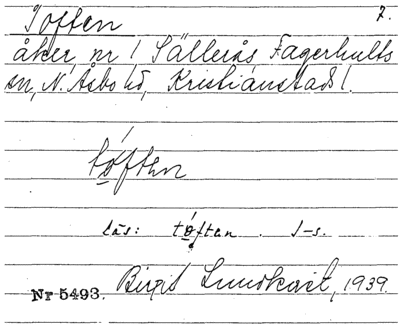 Toften 7.
åker, nr 1 Sällerås, Fagerhults
sn, N. Åsbo hd, Kristianstads l.
tóften
läs: tóften . J-s.
Nr 5493. Birgit Lundkvist, 1939.